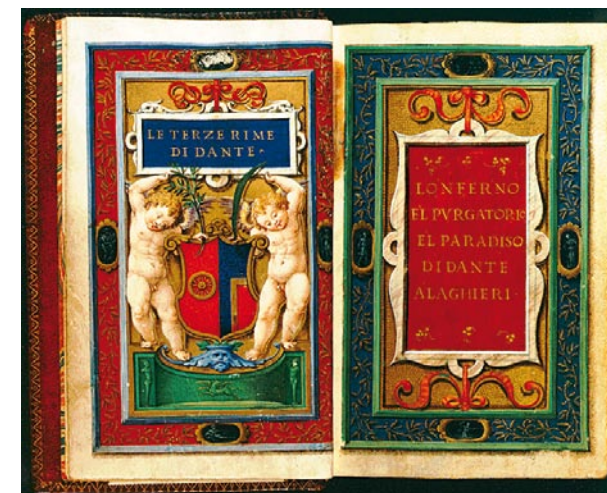 LE TERZE RIME
DI DANTE
LONFERNO
EL PVRGATORIO
EL PARADISO
DI DANTE
ALAGHIERI